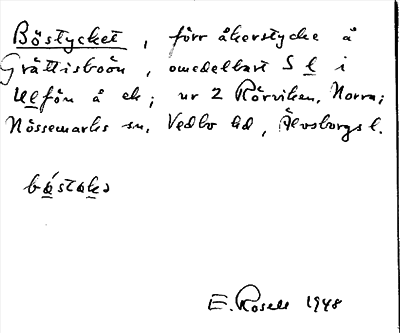 Böstycket, förr åkerstycke å
Grättisboön, omedelbart S l i
Ulfön å ek; nr 2 Rörviken, Norra;
Nössemarks sn, Vedbo hd, Älvsborgs l.
båstake
E. Rosell 1948